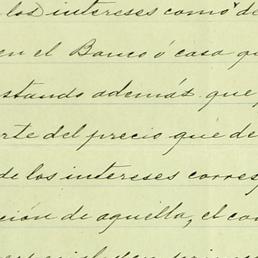 los intereses como de
en el Banco ó casa qu
stando además que
rte del precio que de
de los intereses corres
ción de aquella, el co